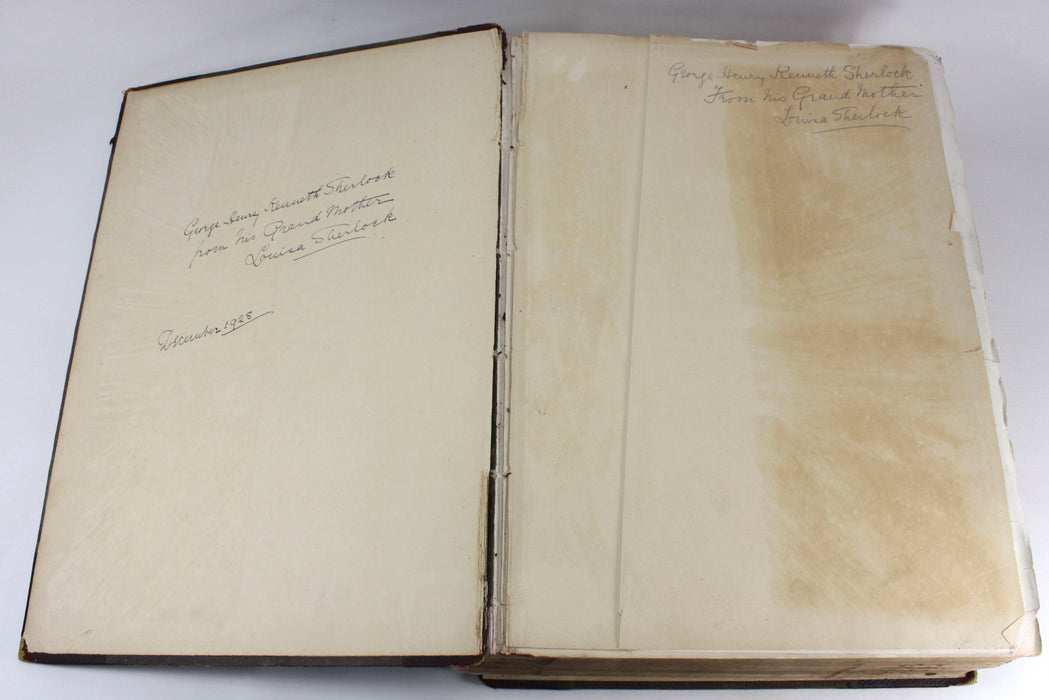 George Henry Kenneth Sherlock
from his Grand Mother
Louisa Sherlock
December 1928
George Henry Kenneth Sherlock
From his Grand Mother
Louisa Sherlock